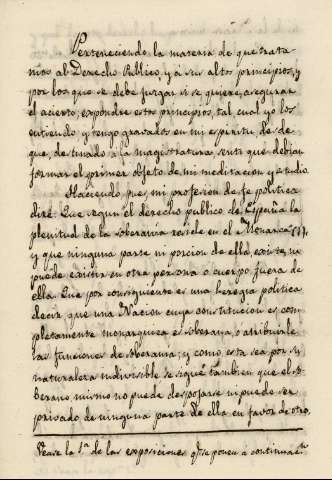 Perteneciendo la materia de que trata-
mos al Derecho Publico, y á sus altos principios, y
por los que se debe juzgar si se quiere asegurar
el acierto, expondre estos principios, tal cual yo los
entiendo y tengo gravados en mi espiritu, desde
que, destinado á la magistratura, senti que debian
formar el primer objeto de mi meditacion y estudio.
Haciendo pues mi profesion de fe politica
diré: Que segun el derecho publico de España la
plenitud de la soberania reside en el Monarca (1),
y que ninguna parte ni porcion de ella, existe, ni
puede existir en otra persona ó cuerpo, fuera de
ella. Que por consiguiente es una heregia politica
decir que una Nacion cuya constitucion es com-
pletamente monarquica es soberana, ó atribuirle
las funciones de soberania; y como esta sea por su
naturaleza indivisible se sigue tambien que el So-
berano mismo no puede despojarse ni puede ser
privado de ninguna parte de ella en favor de otro,
Vease la 1ª de las exposiciones qe se ponen á continuacn